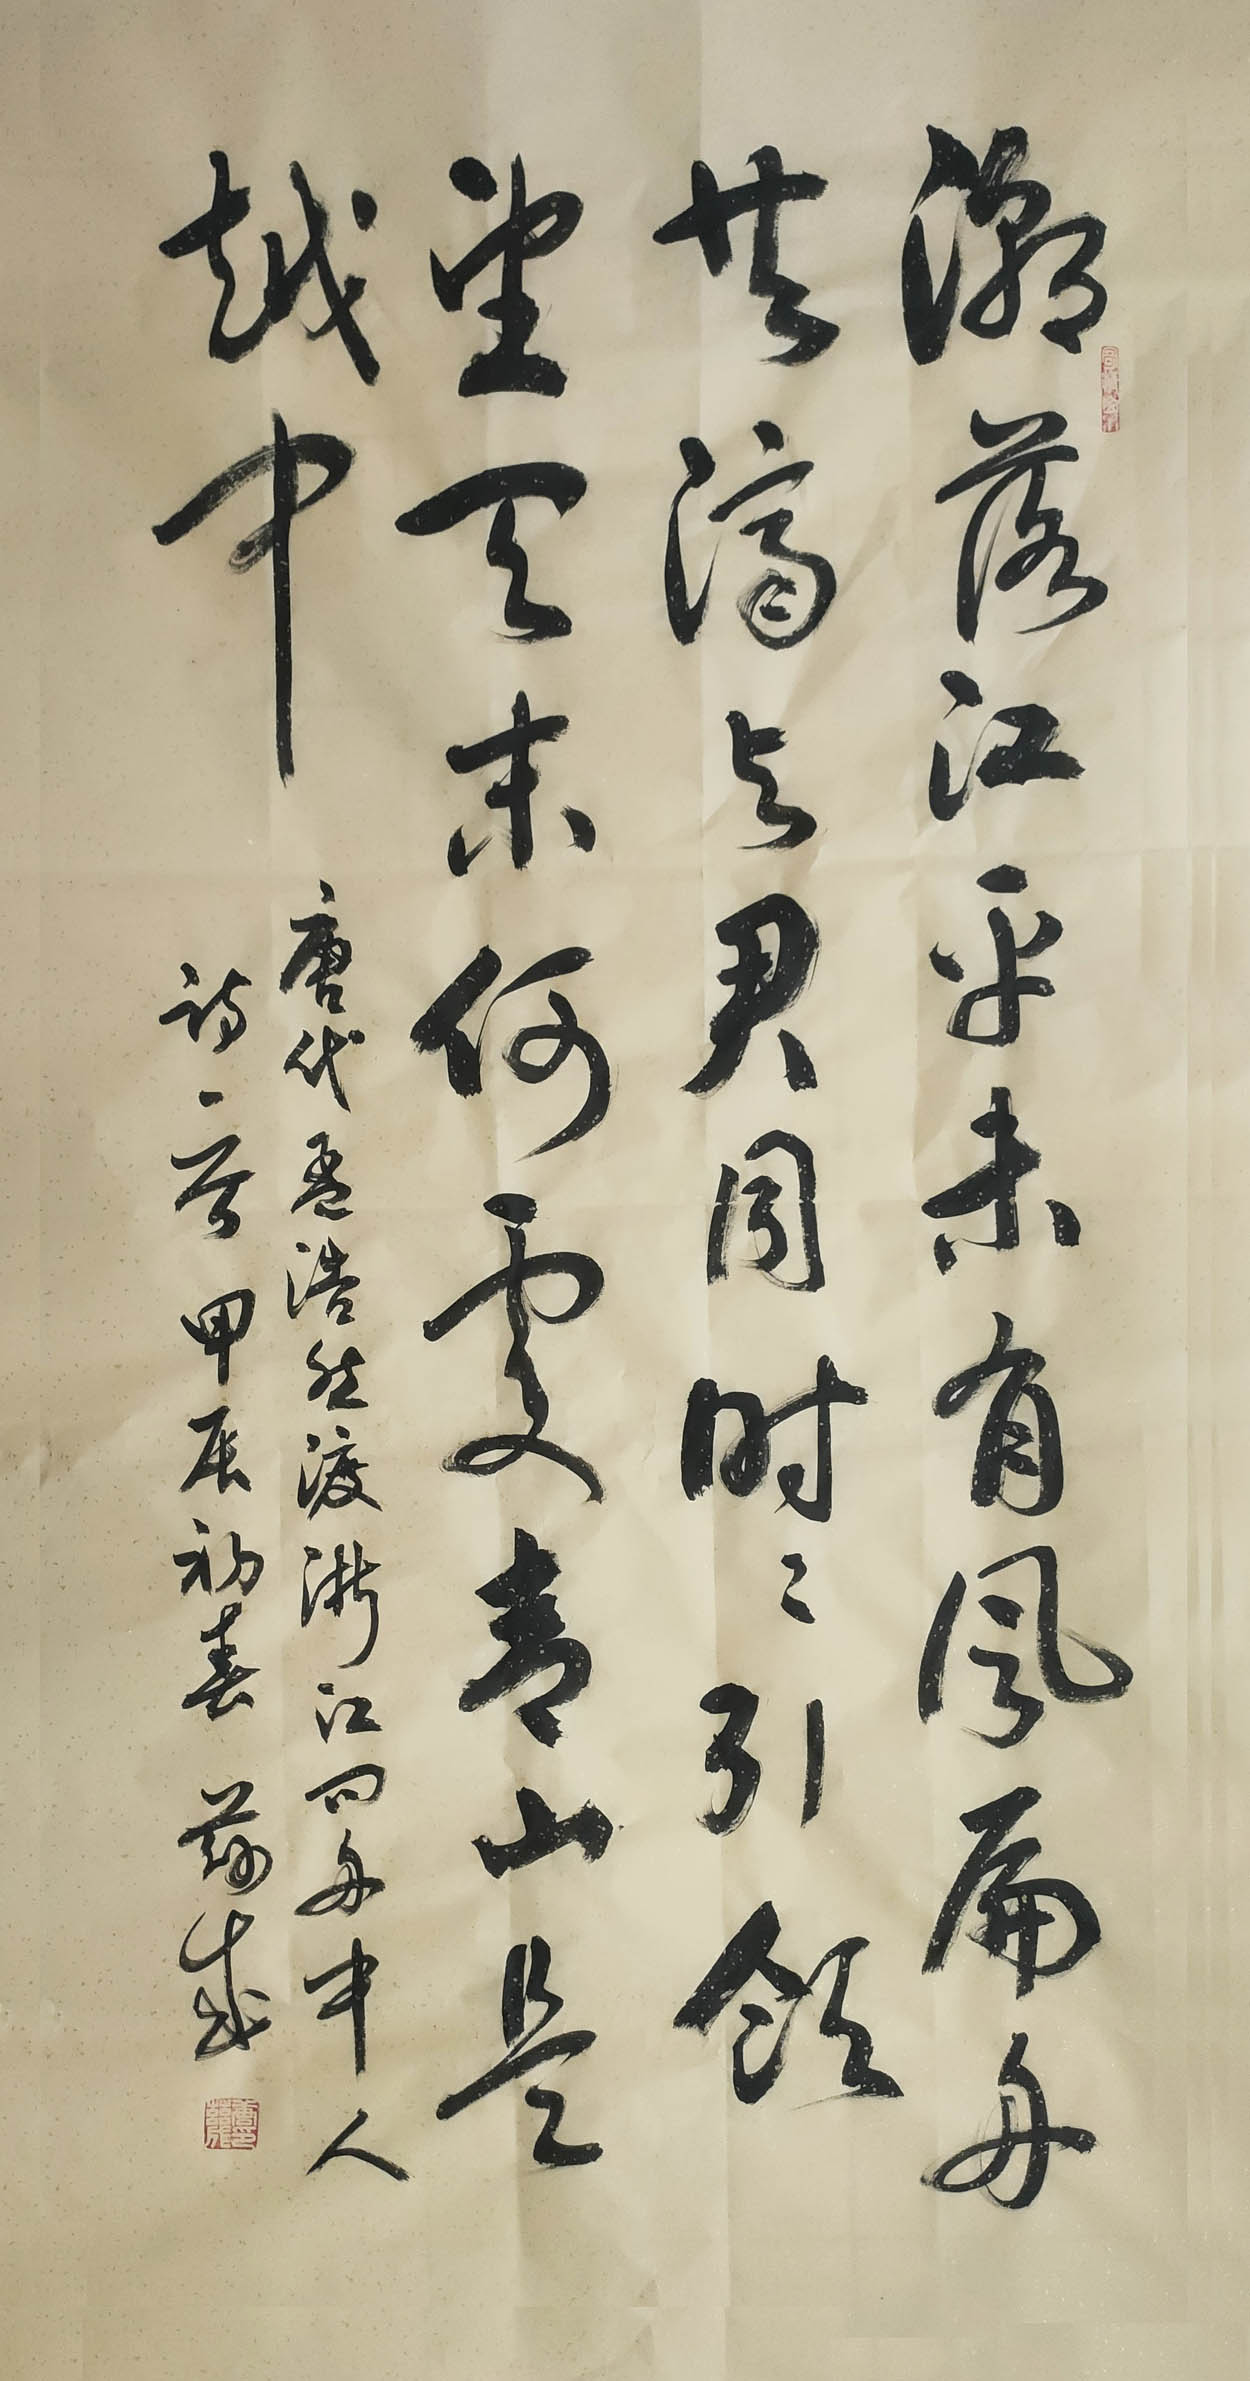 潮落江平未有风扁舟
共济与君同时〻引领
望天末何处青山是
越中
唐代孟浩然渡浙江问舟中人
诗一首甲辰初春